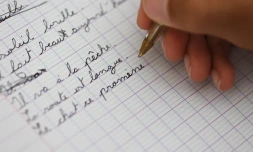 soleil brille.
fait beau aujourd'hui
Il va à la pêche
la route est longue.
le chat se promène